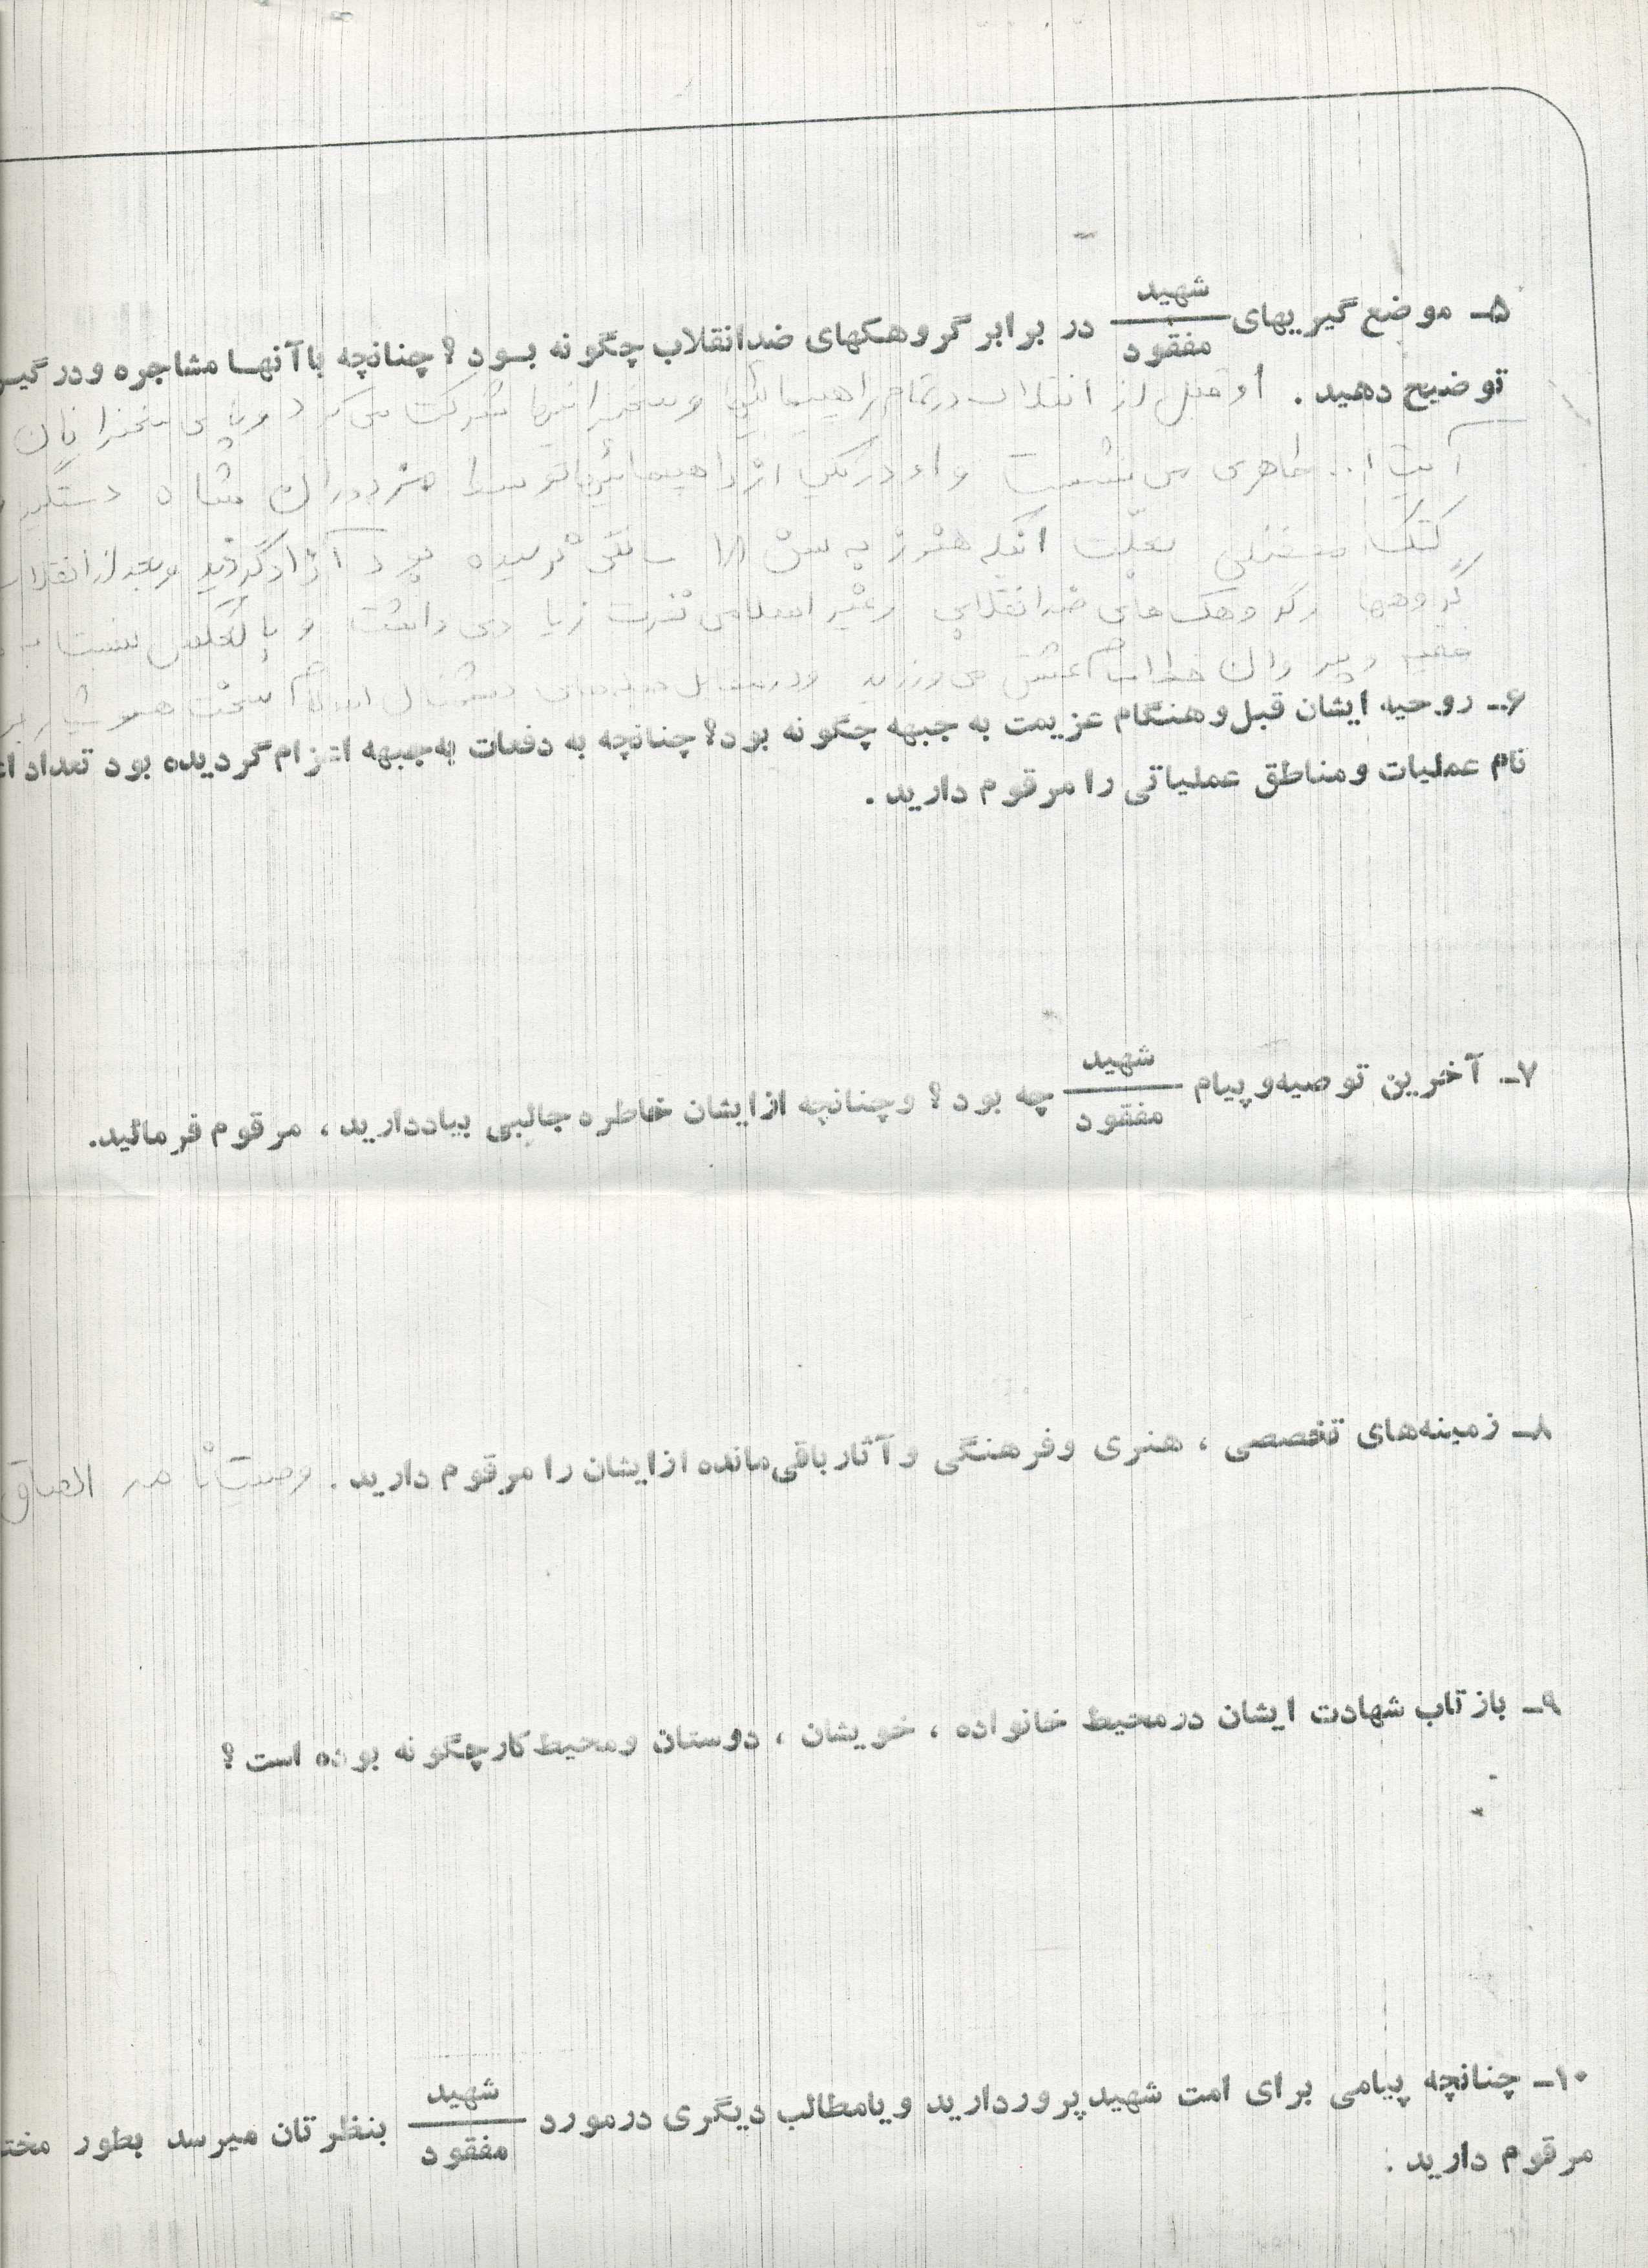 ۵ـ موضع گیریهای شهید / مفقود در برابر گروهکهای ضدانقلاب چگونه بود؟ چنانچه با آنها مشاجره و درگیر
توضیح دهید. او قبل از انقلاب در تمام راهپیمائی و سخنرانیها شرکت می کرد و پای سخنرانان
آیت ا... طاهری می نشست و او در یکی از راهپیمائیها توسط مزدوران شاه دستگیر
کتک مفصلی بعلت آنکه هنوز به سن ۱۸ سالگی نرسیده بود آزاد گردید و بعد از انقلاب
گروهها و گروهک های ضد انقلابی و غیر اسلامی نفرت زیادی داشت و بالعکس نسبت به
و پیروان خط امام عشق می ورزید و در مقابل دشمنان اسلام سخت هوشیار
۶ـ روحیه ایشان قبل و هنگام عزیمت به جبهه چگونه بود؟ چنانچه به دفعات به جبهه اعزام گردیده بود تعداد
نام عملیات و مناطق عملیاتی را مرقوم دارید.
۷ـ آخرین توصیه و پیام شهید / مفقود چه بود؟ و چنانچه از ایشان خاطره جالبی بیاد دارید، مرقوم فرمائید.
۸ـ زمینه‌های تخصصی، هنری و فرهنگی و آثار باقی‌مانده از ایشان را مرقوم دارید. وصیت نامه
۹ـ بازتاب شهادت ایشان در محیط خانواده، خویشان، دوستان و محیط کار چگونه بوده است؟
۱۰ـ چنانچه پیامی برای امت شهید پرور دارید و یا مطالب دیگری در مورد شهید / مفقود بنظرتان میرسد بطور مخت
مرقوم دارید: